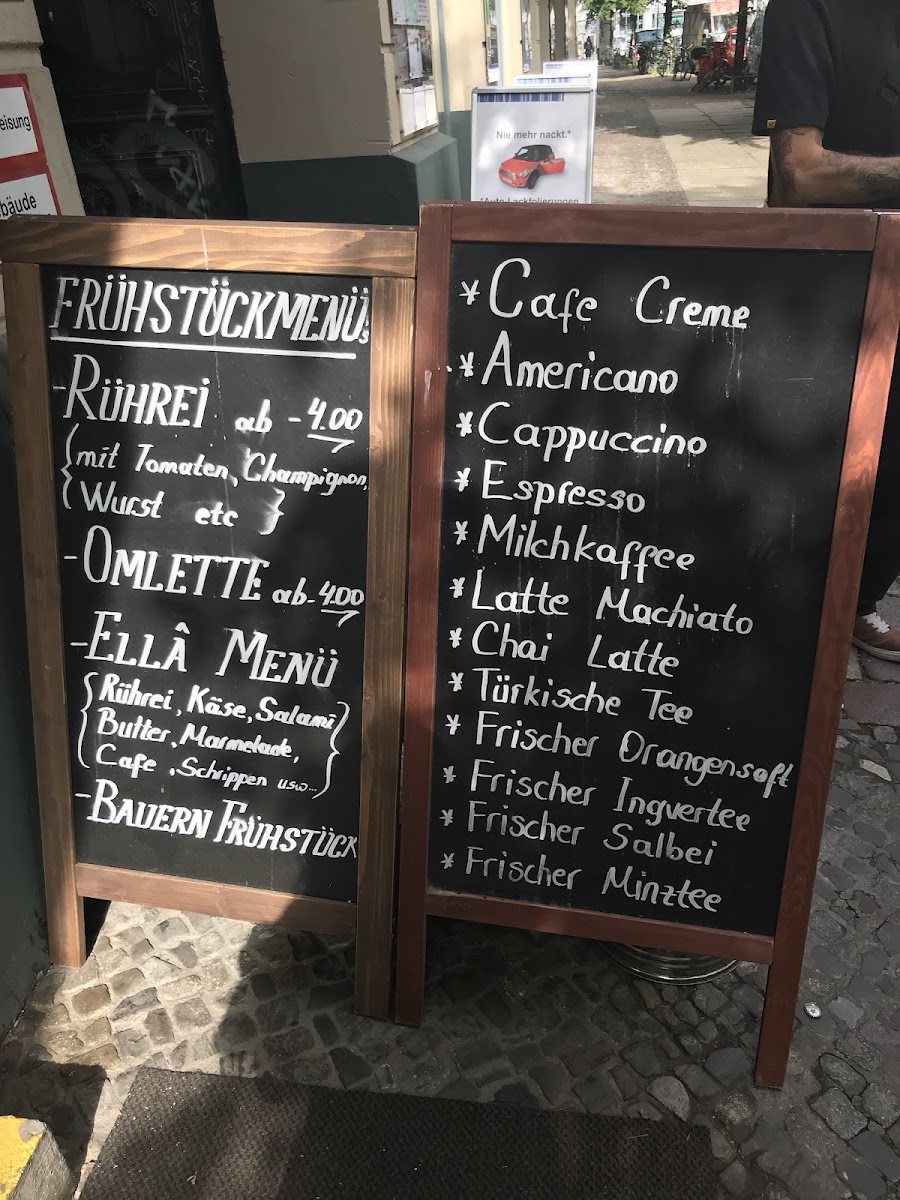 eisung
bäude
Nie mehr nackt.*
*Auto Lackfolierungen
FRÜHSTÜCKMENÜs
-RÜHREi ab - 4.00
{mit Tomaten, Champignon,
Wurst etc }
-OMLETTE ab- 4.00
-ELLÂ MENÜ
{Rührei, Käse, Salami
Butter, Marmelade,
Cafe, Schrippen usw...}
-BAUERN FRÜHSTÜCK
* Cafe Creme
* Americano
* Cappuccino
* Espresso
* Milchkaffee
* Latte Machiato
* Chai Latte
* Türkische Tee
* Frischer Orangensaft
* Frischer Ingvertee
* Frischer Salbei
* Frischer Minztee